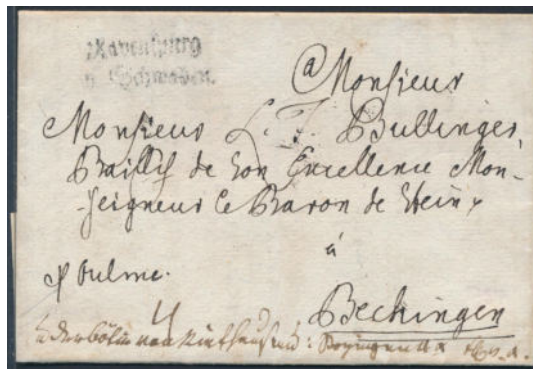 Ravensburg
in Schwaben.
a Monsieur
Monsieur L. J. Bullinger,
Baillif de son Excellence Mon-
seigneur le Baron de Stein
à
p Oulme.
Bechingen